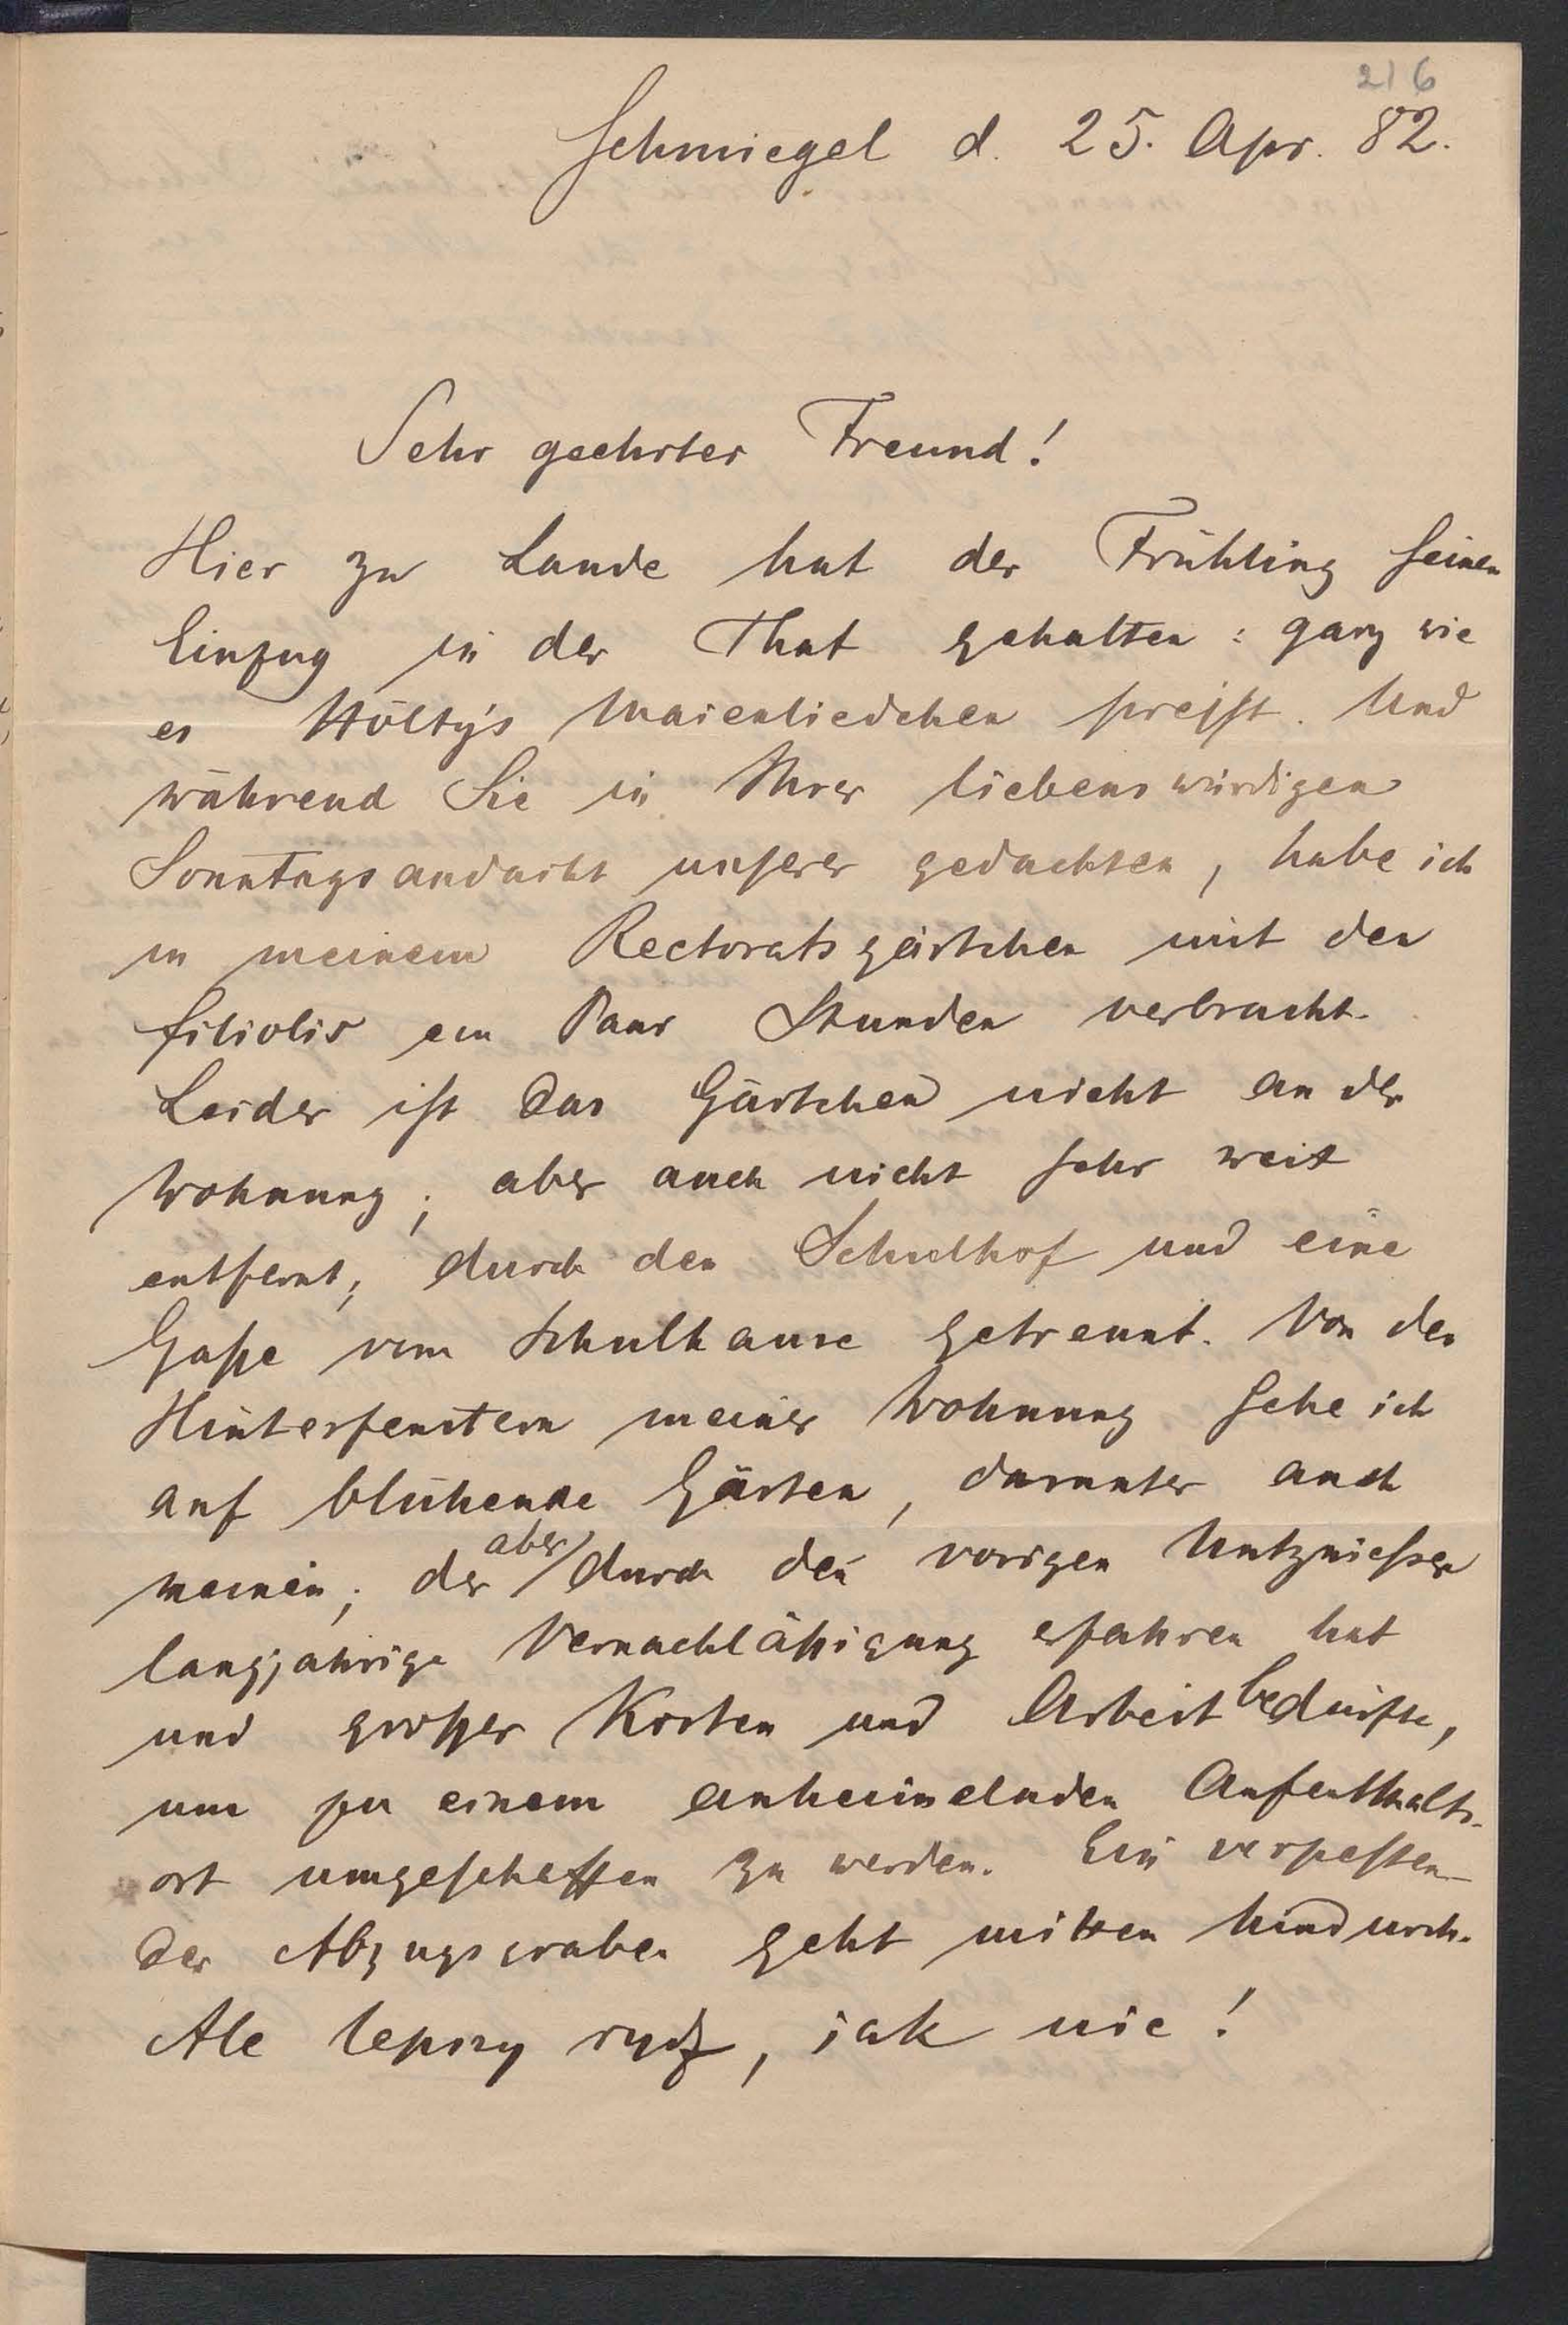 216
Schmiegel d. 25. Apr. 82.
Sehr geehrter Freund!
Hier zu Lande hat der Frühling seinen
Einzug in der That gehalten: ganz wie
es Hölty's Maienliedchen preisst. Und
während Sie in Ihrer liebenswürdigen
Sonntagsandacht unserer gedachten, habe ich
in meinem Rectoratsgärtchen mit den
filiolis ein Paar Stunden verbracht.
Leider ist das Gärtchen nicht an der
Wohnung; aber auch nicht sehr weit
entfernt; durch den Schulhof und eine
Gaße vom Schulhause getrennt. Von den
Hinterfenstern meiner Wohnung sehe ich
auf blühende Gärten, darunter auch
meinen; der aber durch den vorigen Nutznießer
langjährige Vernachläßigung erfahren hat
und großer Kosten und Arbeit bedürfte,
um zu einem anheimelnden Aufenthalts-
ort umgeschaffen zu werden. Ein verpesten-
der Abzugsgraben geht mitten hindurch.
Ale lepszy rydz, jak nic!